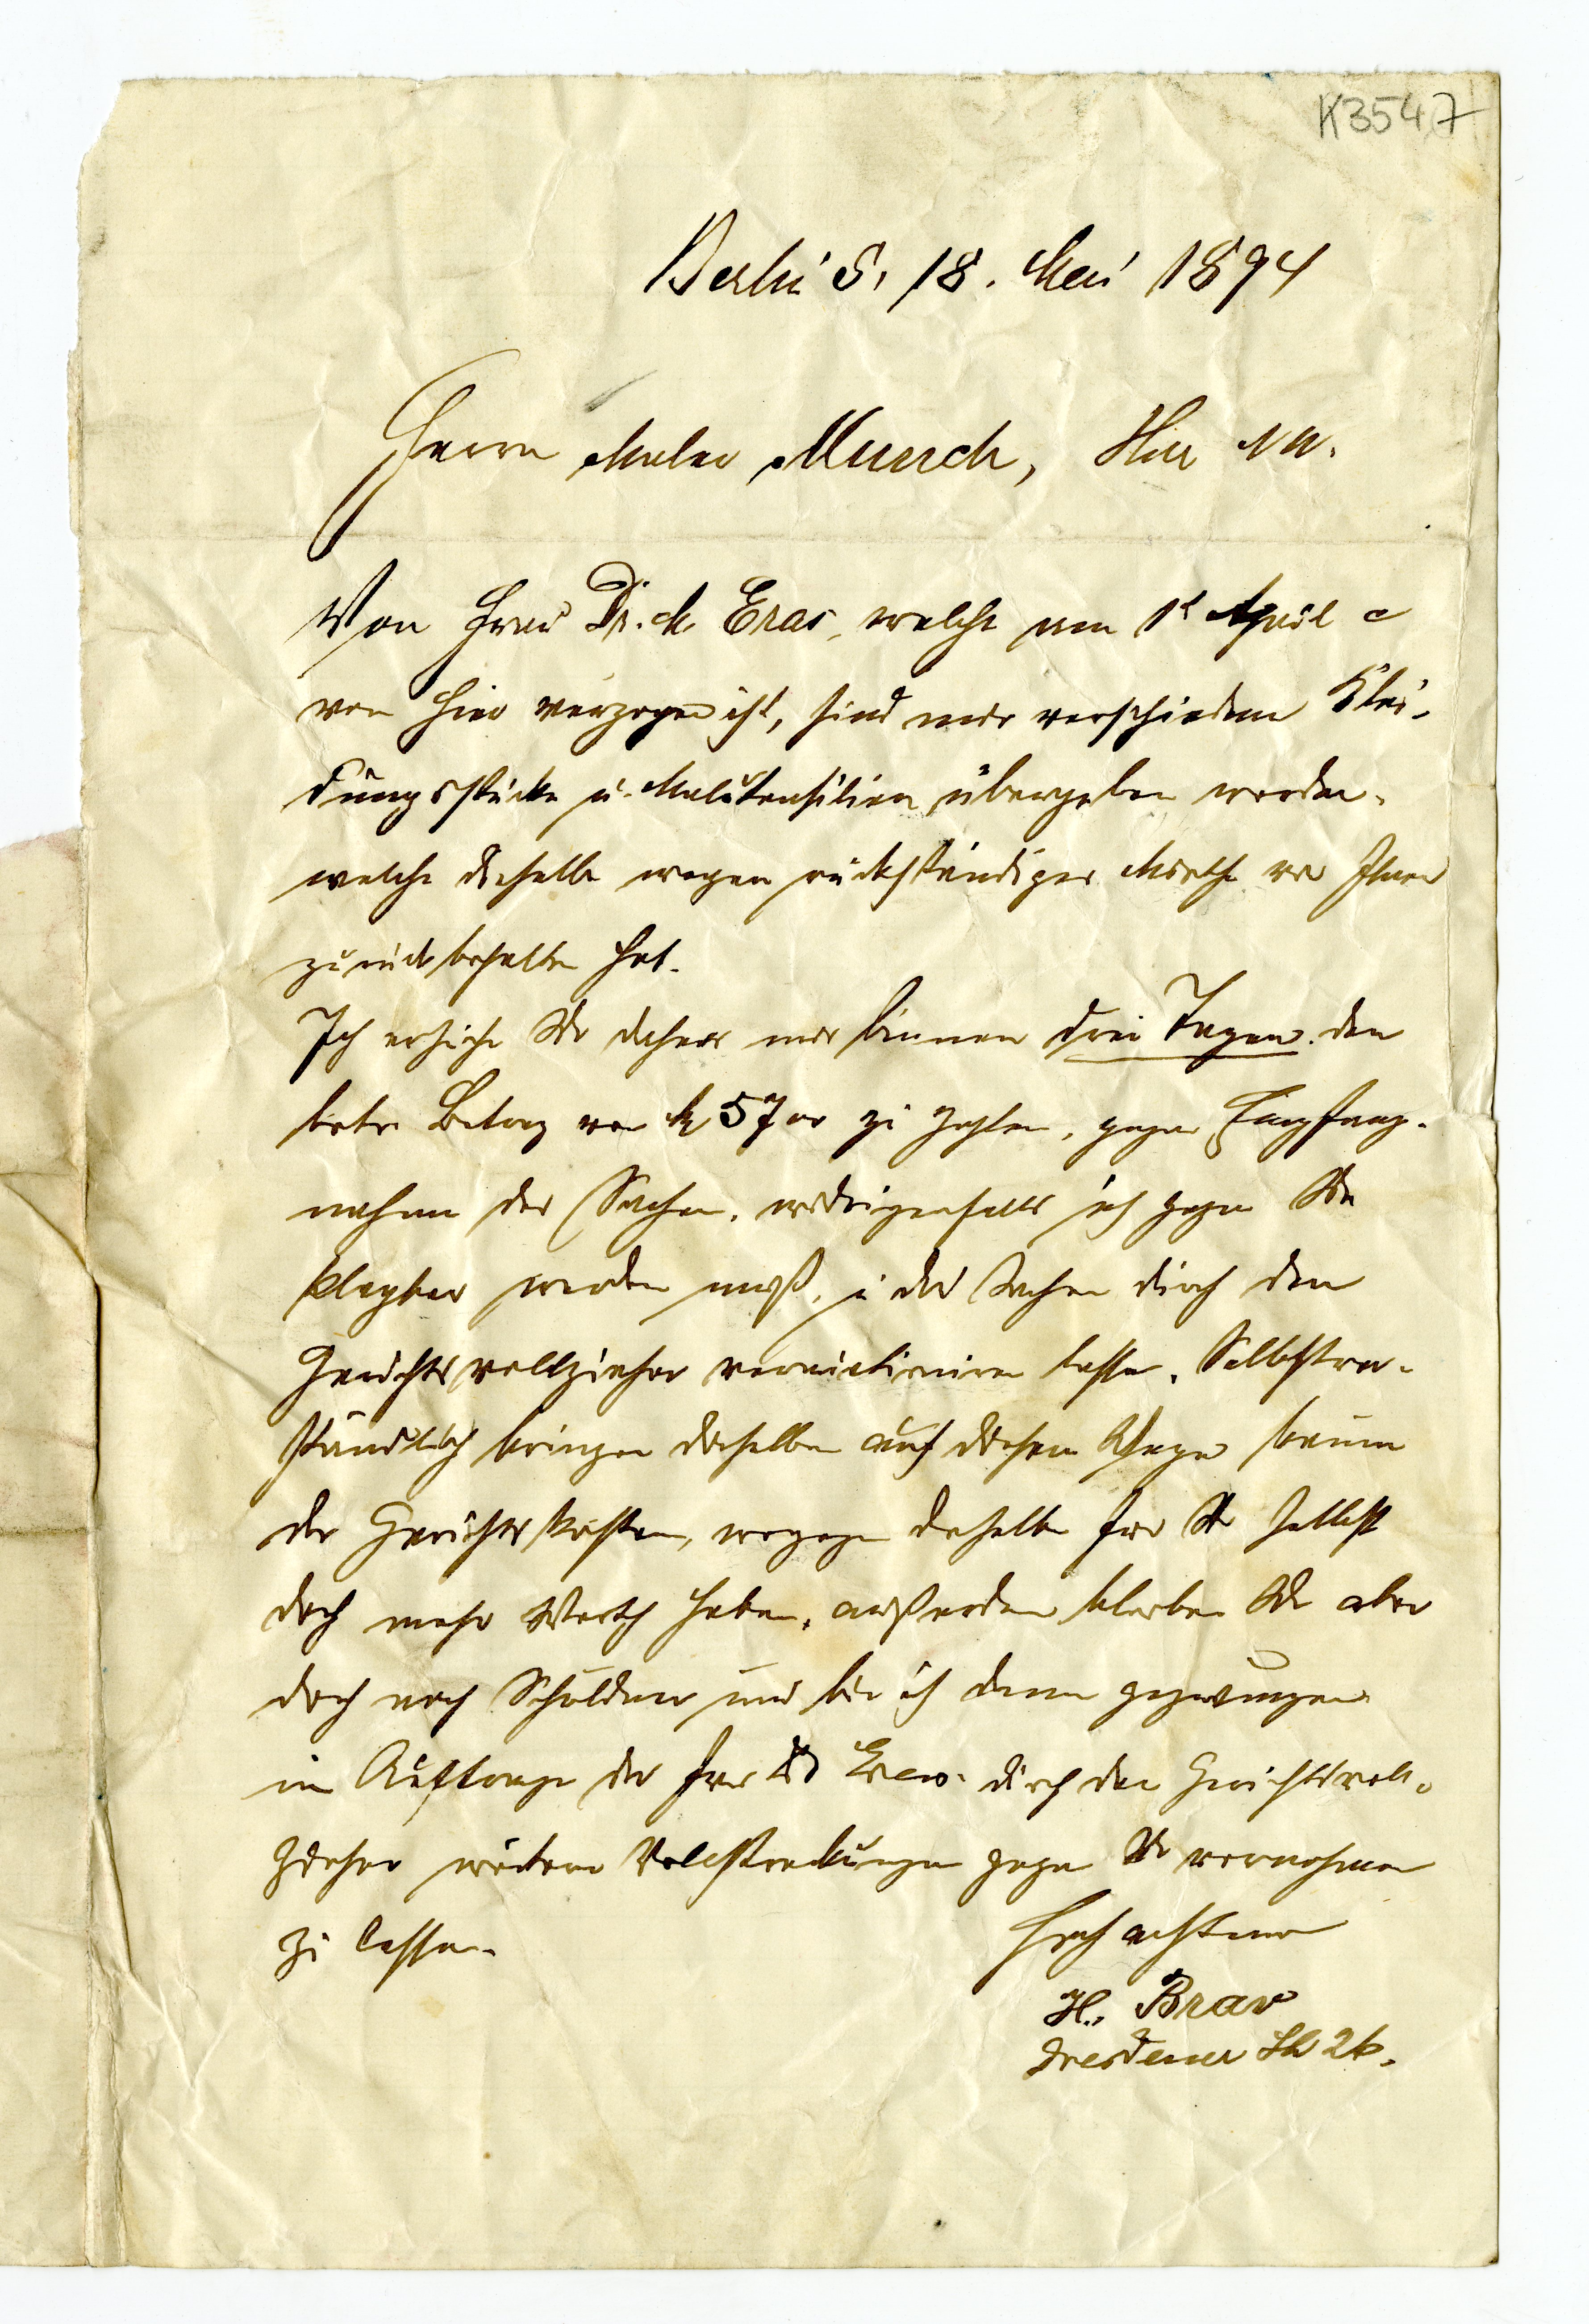 K3547
Berlin S, 18. Mai 1894
Herrn Maler Munch, Hier NW.
Von Frau Dr. M. Eras, welche am 1t April c
von hier verzogen ist, sind mir verschiedene Klei-
dungsstücke u. Malutensilien übergeben worden,
welche dieselbe wegen rückständiger Miethe von Ihnen
zurückbehalten hat.
Ich ersuche Sie daher mir binnen drei Tagen den
betr. Betrag von M 57 zu zahlen, gegen Empfang-
nahme der Sachen, widrigenfalls ich gegen Sie
klagbar werden muß, u die Sachen durch den
Gerichtsvollzieher verauctioniren lasse. Selbstver-
ständlich bringen dieselben auf diesem Wege kaum
die Gerichtskosten, wogegen dieselben für Sie selbst
doch mehr Werth haben, außerdem bleiben Sie aber
doch noch Schuldner und bin ich dann gezwungen
im Auftrage der Frau Dr Eras durch den Gerichtsvoll-
zieher weitere Vollstreckungen gegen Sie vornehmen
zu lassen.
Hochachtend
H. Brav
Dresdener Str 26.